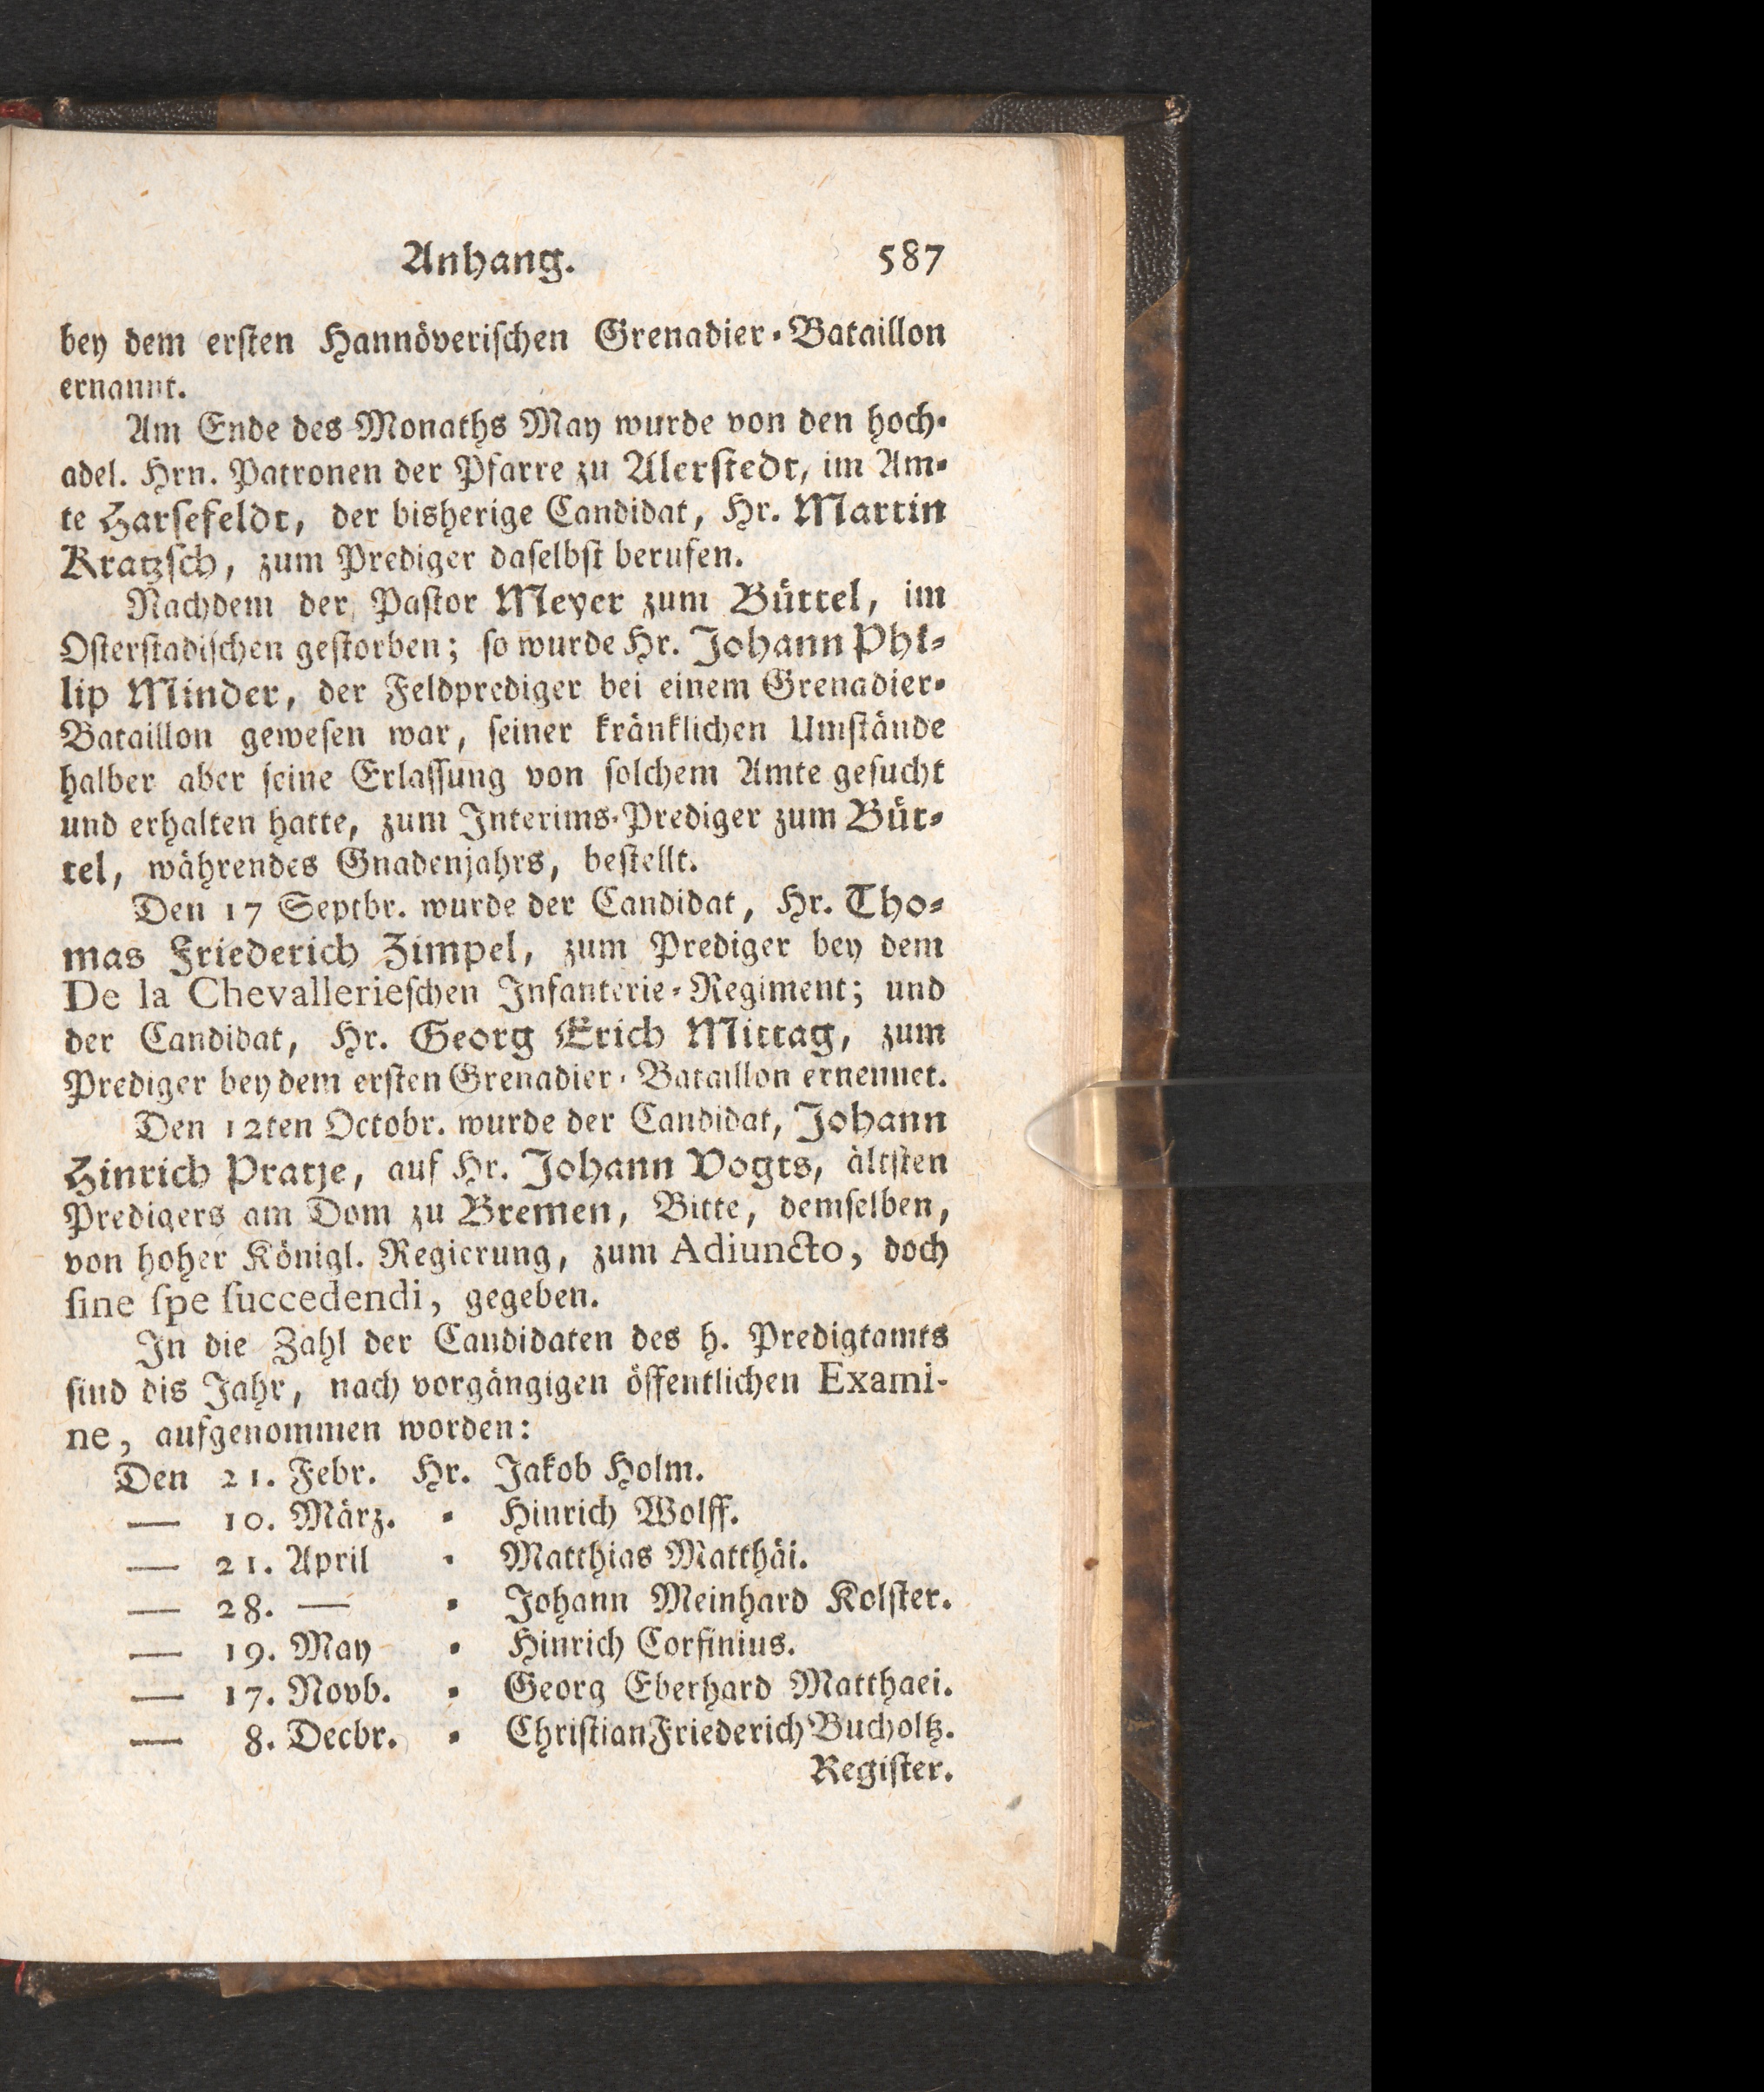 Anhang. 587
bey dem ersten Hannöverischen Grenadier-Bataillon
ernannt.
Am Ende des Monaths May wurde von den hoch-
adel. Hrn. Patronen der Pfarre zu Alerstedt, im Am-
te Harsefeldt, der bisherige Candidat, Hr. Martin
Kratzsch, zum Prediger daselbst berufen.
Nachdem der Pastor Meyer zum Büttel, im
Osterstadischen gestorben; so wurde Hr. Johann Phi-
lip Minder, der Feldprediger bei einem Grenadier-
Bataillon gewesen war, seiner kränklichen Umstände
halber aber seine Erlassung von solchem Amte gesucht
und erhalten hatte, zum Interims-Prediger zum Büt-
tel, währendes Gnadenjahrs, bestellt.
Den 17 Septbr. wurde der Candidat, Hr. Tho-
mas Friederich Zimpel, zum Prediger bey dem
De la Chevallerieschen Infanterie-Regiment; und
der Candidat, Hr. Georg Erich Mittag, zum
Prediger bey dem ersten Grenadier-Bataillon ernennet.
Den 12ten Octobr. wurde der Candidat, Johann
Hinrich Pratje, auf Hr. Johann Vogts, ältsten
Predigers am Dom zu Bremen, Bitte, demselben,
von hoher Königl. Regierung, zum Adiuncto, doch
sine spe succedendi, gegeben.
In die Zahl der Candidaten des h. Predigtamts
sind dis Jahr, nach vorgängigen öffentlichen Exami-
ne, aufgenommen worden:
Den 21. Febr. Hr. Jakob Holm.
— 10. März. - Hinrich Wolff.
— 21. April - Matthias Matthäi.
— 28. — - Johann Meinhard Kolster.
— 19. May - Hinrich Corfinius.
— 17. Novb. - Georg Eberhard Matthaei.
— 8. Decbr. - Christian Friederich Bucholtz.
Register.